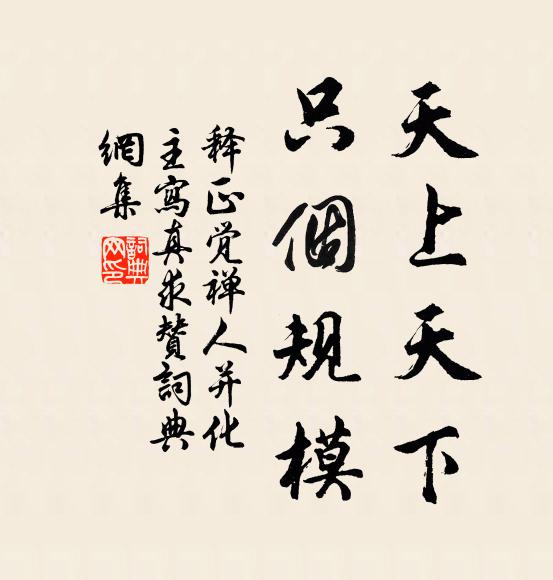 天上天下
只個規模
释正觉禅人并化
主寫真求贊詞典
網集
詞典網印